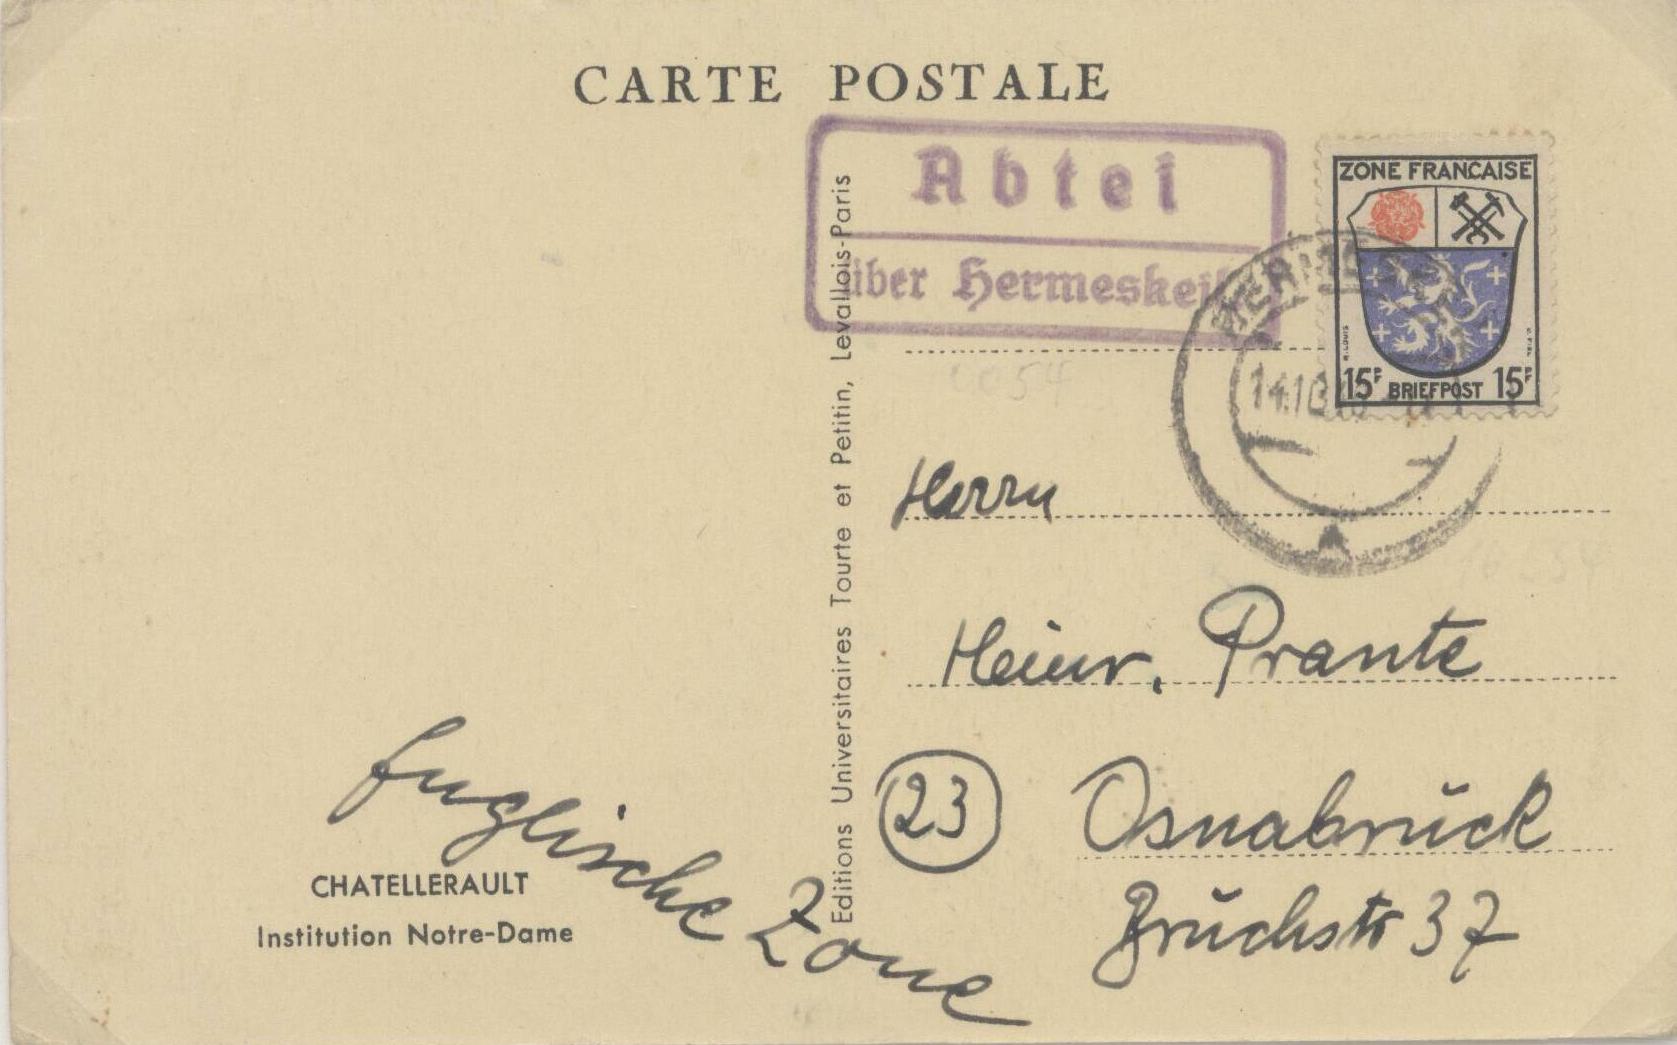 CARTE POSTALE
Abtei
über Hermeskeil
ZONE FRANCAISE
15F BRIEFPOST 15F
R. LOUIS
HERMES
14.10
A
Editions Universitaires Tourte et Petitin, Levallois-Paris
Herrn
Heinr. Prante
23 Osnabrück
Bruchstr 37
Englische Zone
CHATELLERAULT
Institution Notre-Dame